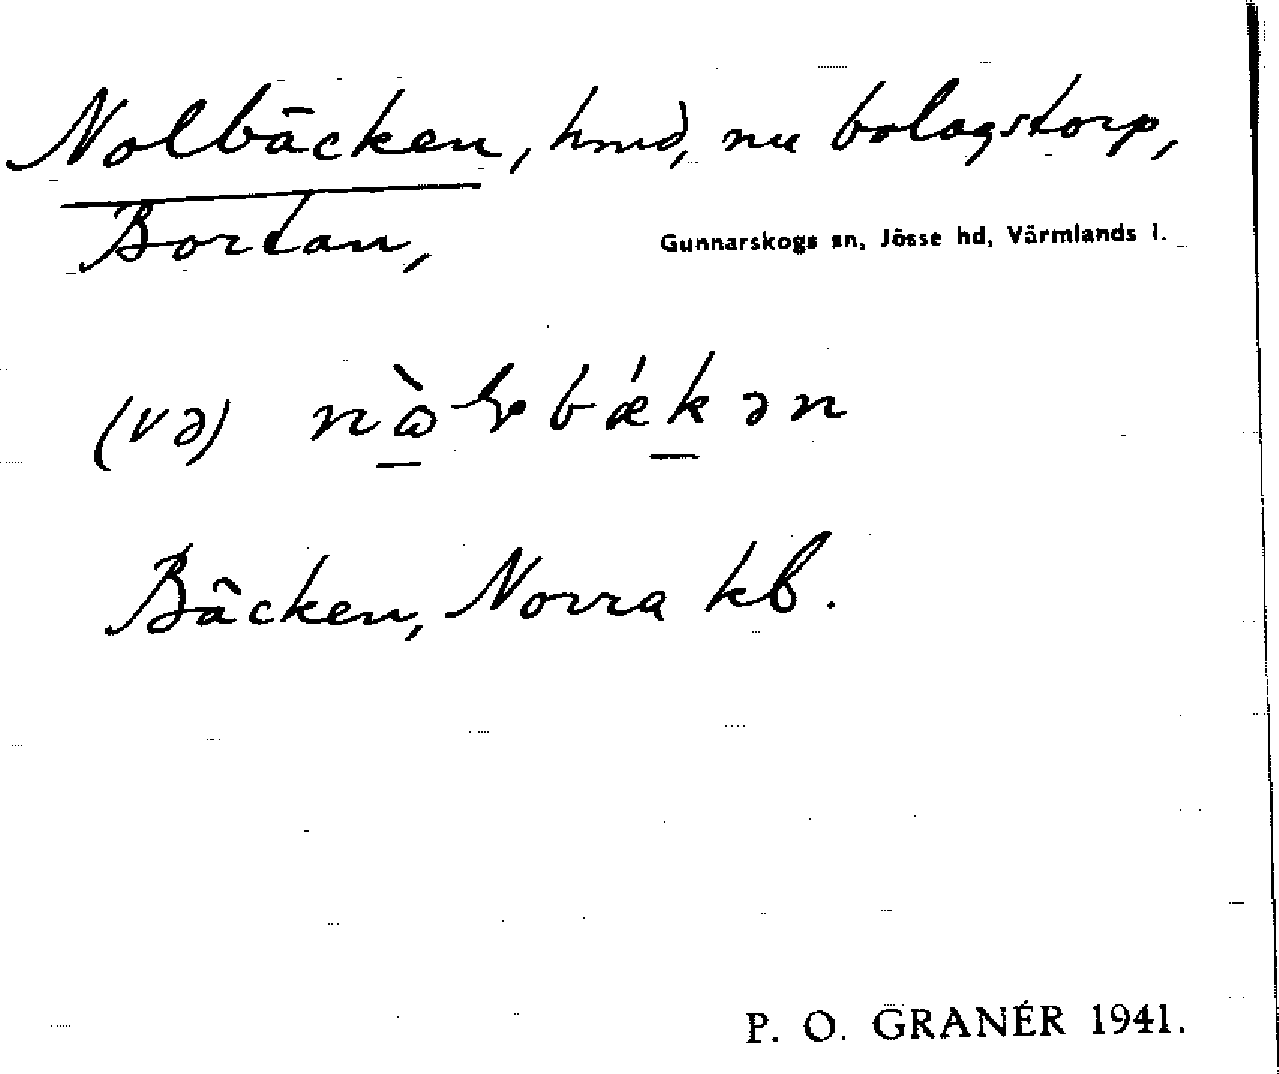 Nolbäcken, hmd, nu bolagstorp,
Bortan,
Gunnarskogs sn, Jösse hd, Värmlands l.
(və) bǽkən
Bäcken, Norra kb.
P. O. GRANÉR 1941.